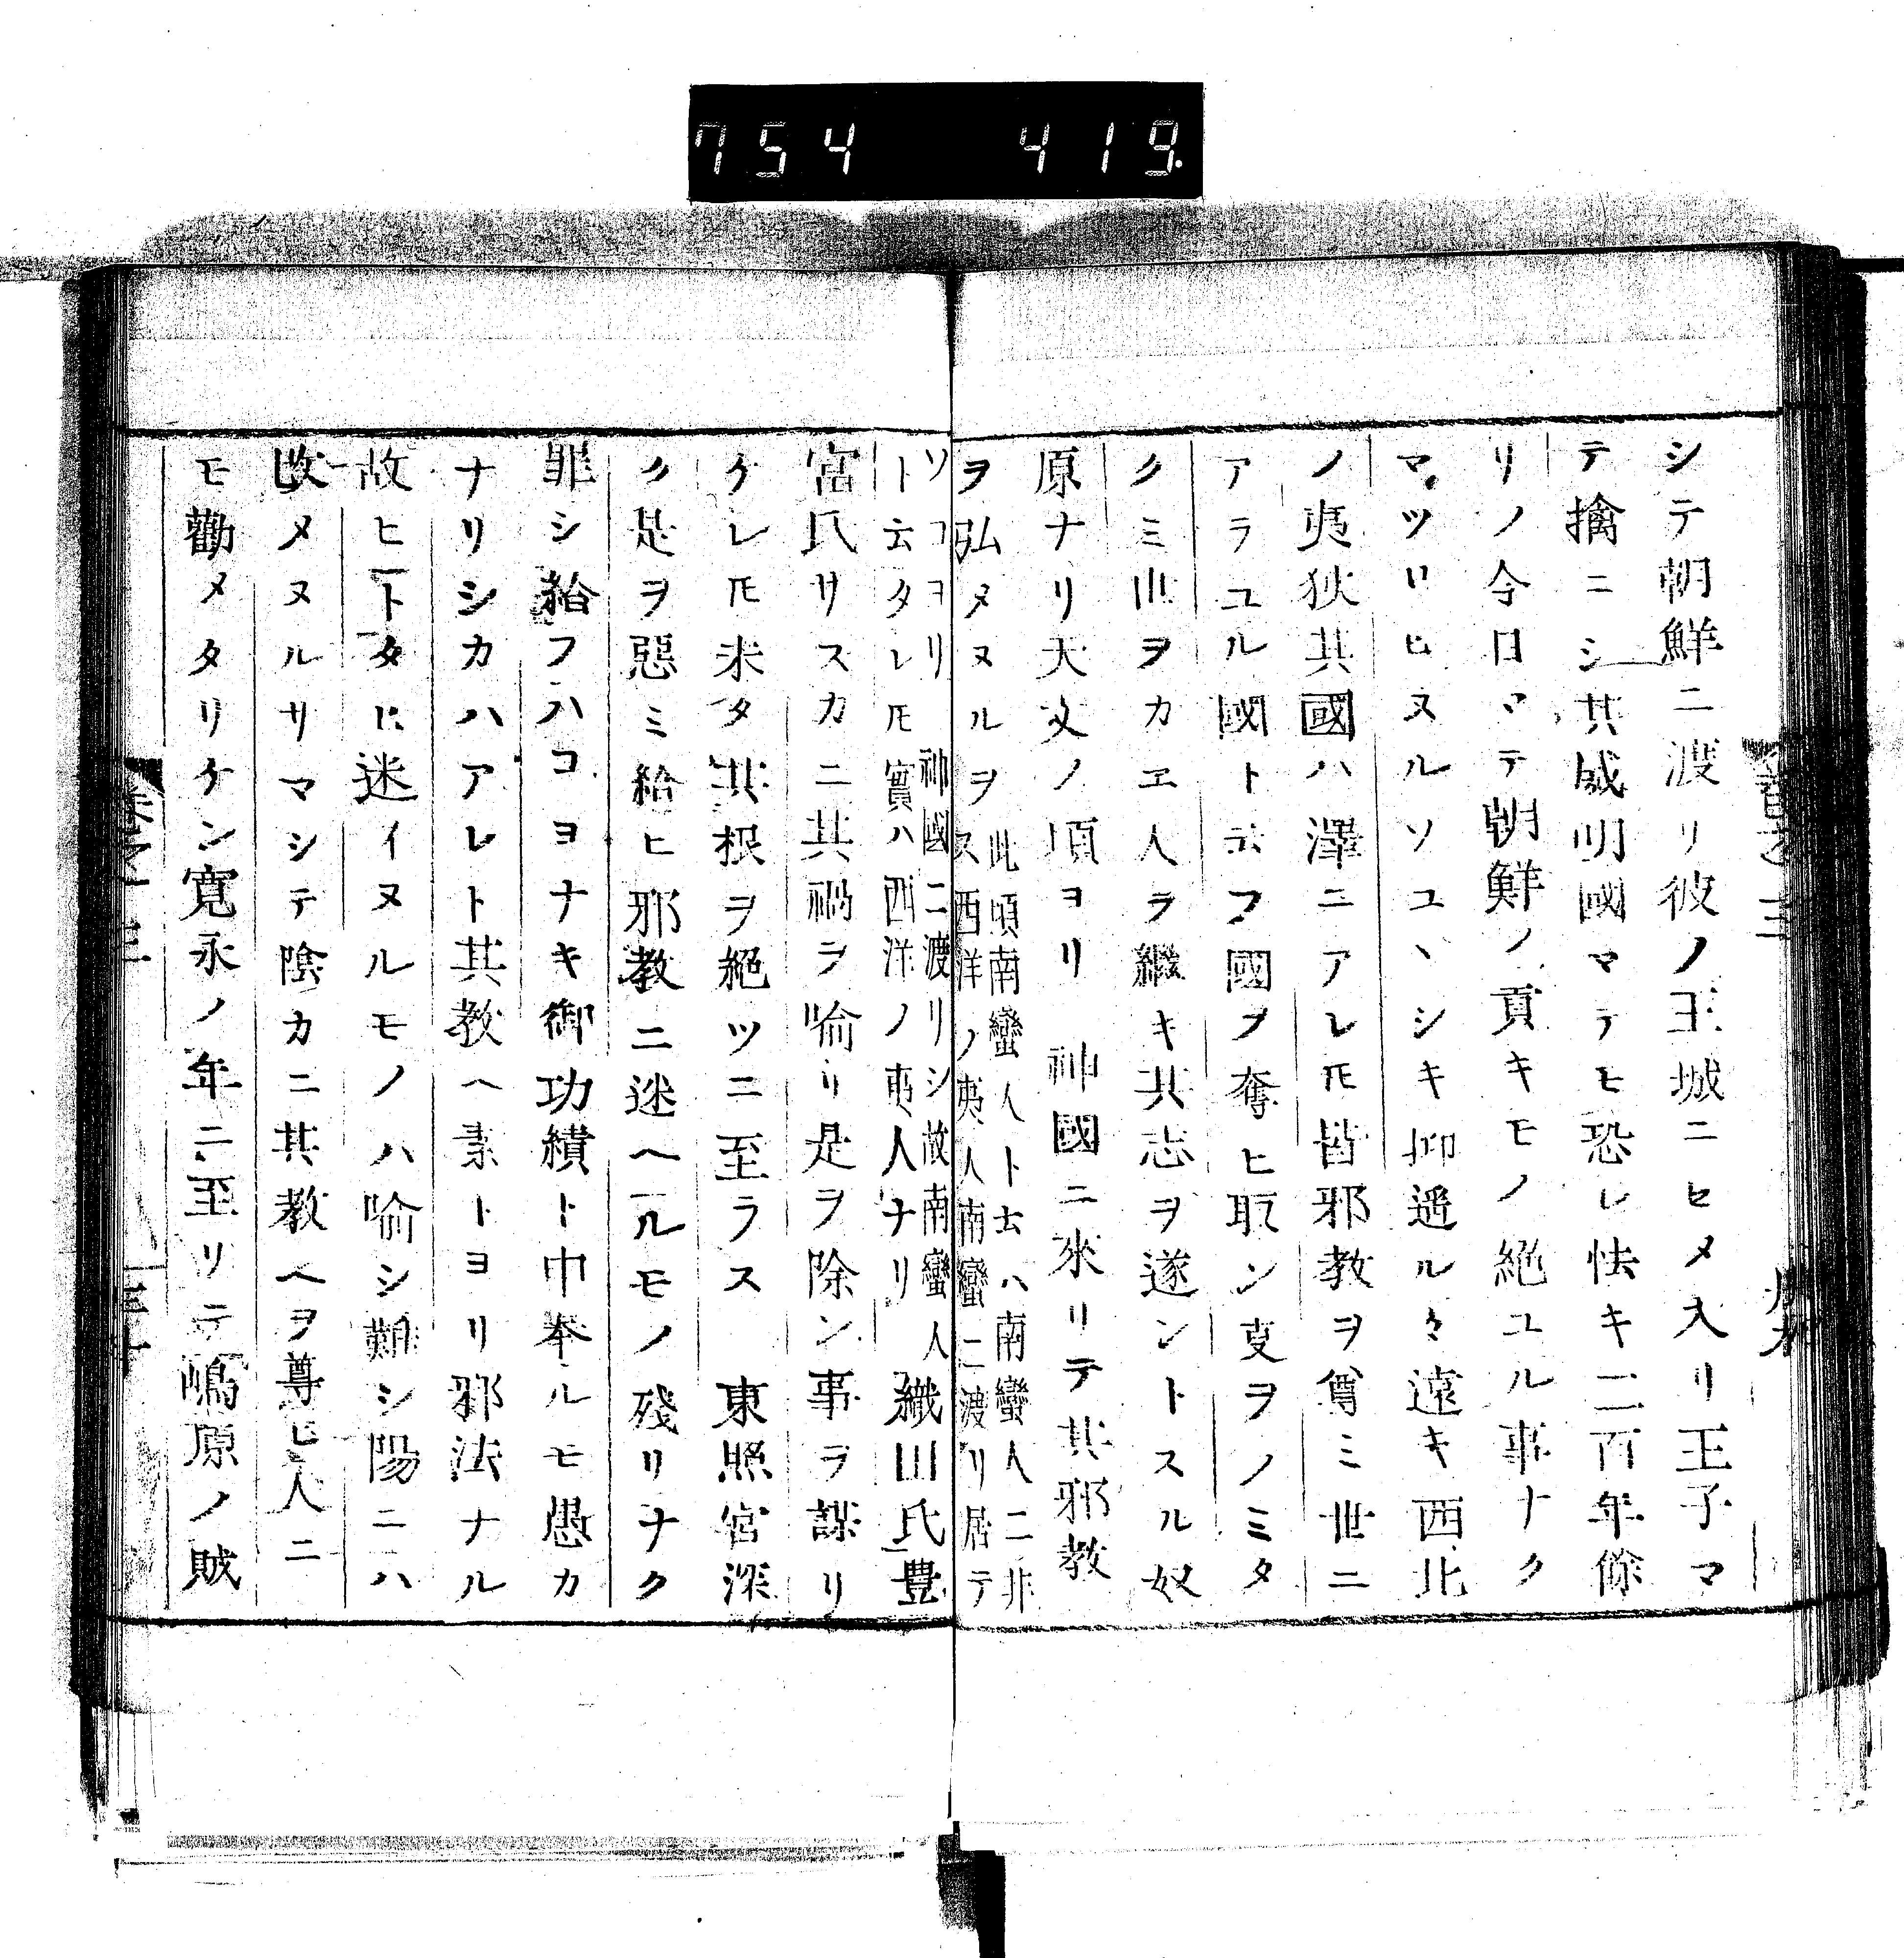 754 419
シテ朝鮮ニ渡リ彼ノ王城ニセメ入リ王子マ
テ擒ニシ其威明國マテモ恐レ怯キ二百年餘
リノ今日マテ朝鮮ノ貢キモノ絶ユル事ナク
マツリヒヌルソユヽシキ抑遥ルヾ遠キ西北
ノ夷狄其國ハ澤ニアレ𪜈皆邪教ヲ尊ミ世ニ
アラユル國ト云フ國ヲ奪ヒ取ン叓ヲノミタ
クミ巛ヲカエ人ラ繼キ其志ヲ遂ントスル奴
原ナリ天文ノ頃ヨリ 神國ニ來リテ其邪教
ヲ弘メヌルヲ
此頃南蠻人ト云ハ南蠻人ニ非
ス西洋ノ夷人南蠻ニ渡リ居テ
ソコヨリ 神國ニ渡リシ故南蠻人
ト云タレ𪜈 實ハ西洋ノ夷人ナリ
織田氏豊
宮氏サスカニ其禍ヲ喻リ是ヲ除ン事ヲ謀リ
ケレ𪜈未タ其根ヲ絕ツニ至ラス 東照宮深
ク是ヲ惡ミ給ヒ邪教ニ迷ヘルモノ殘リナク
罪シ給フハコヨナキ御功績ト中奉ルモ愚カ
ナリシカハアレト其教ヘ素トヨリ邪法ナル
故ヒトタヒ迷イヌルモノハ喻シ難シ陽ニハ
改メヌルサマシテ陰カニ其教ヘヲ尊ヒ人ニ
モ勸メタリケン寛永ノ年ニ至リテ嶋原ノ賊